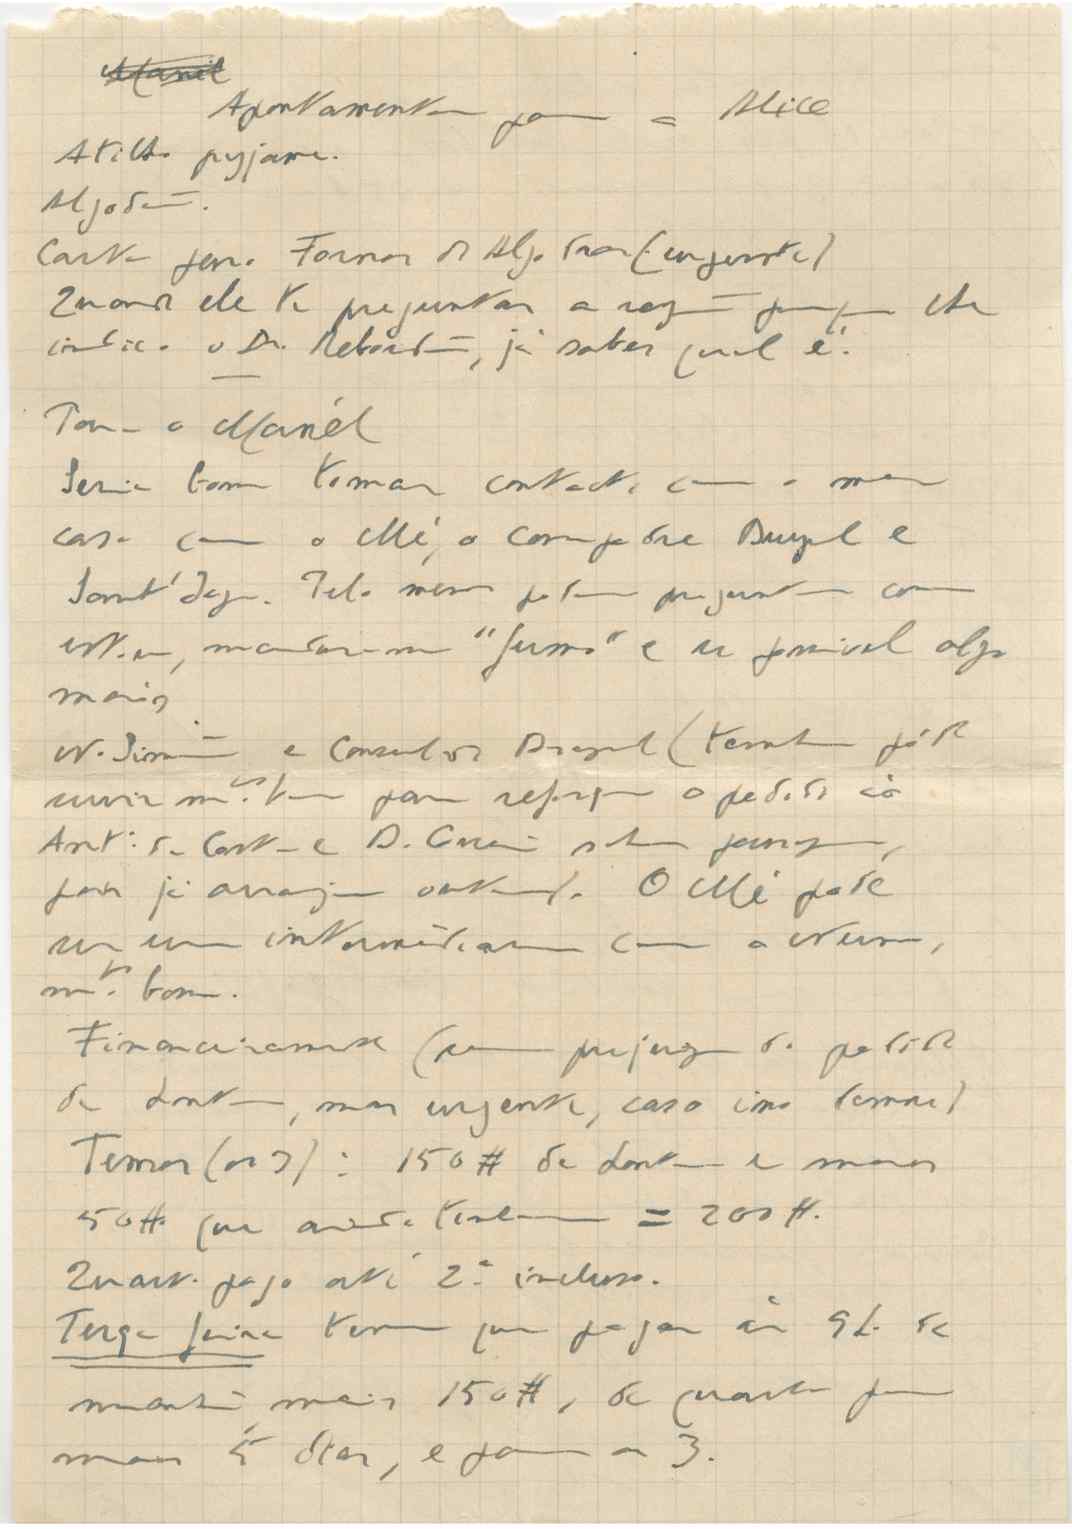 Manél
Apontamentos para a Alice
Atilho pyjama.
Algodão.
Carta para Fornos de Algodres (urgente)
Quando ele te preguntar a razão porque
indica o Dr. Rebordão, já sabes qual é.
Para o Manél
Seria bom tomar contacto com o meu
caso com o Mé, o compadre Dugal e
Sant'Iago. Pelo menos podem preguntar como
estou, mandarem-me "fumo" e se possivel algo
mais
N. Simão e Consul do Brazil (também póde
servir m.to bem para reforçar o pedido ao
Ant.º da Costa e D.
pois já O Mé pode
ser um intermediario com o Nuno,
m.to bom.
Financeiramente (sem prejuizo do pedido
de hontem, mas urgente, caso isso demore)
Temos (os 3): 150# de hontem e menos
50# que ainda tinhamos = 200#.
Quarto pago até 2.ª incluso.
Terça feira temos que pagar ás 9h. da
manhã, mais 150#, de quarto para
mais 5 dias, e para os 3.